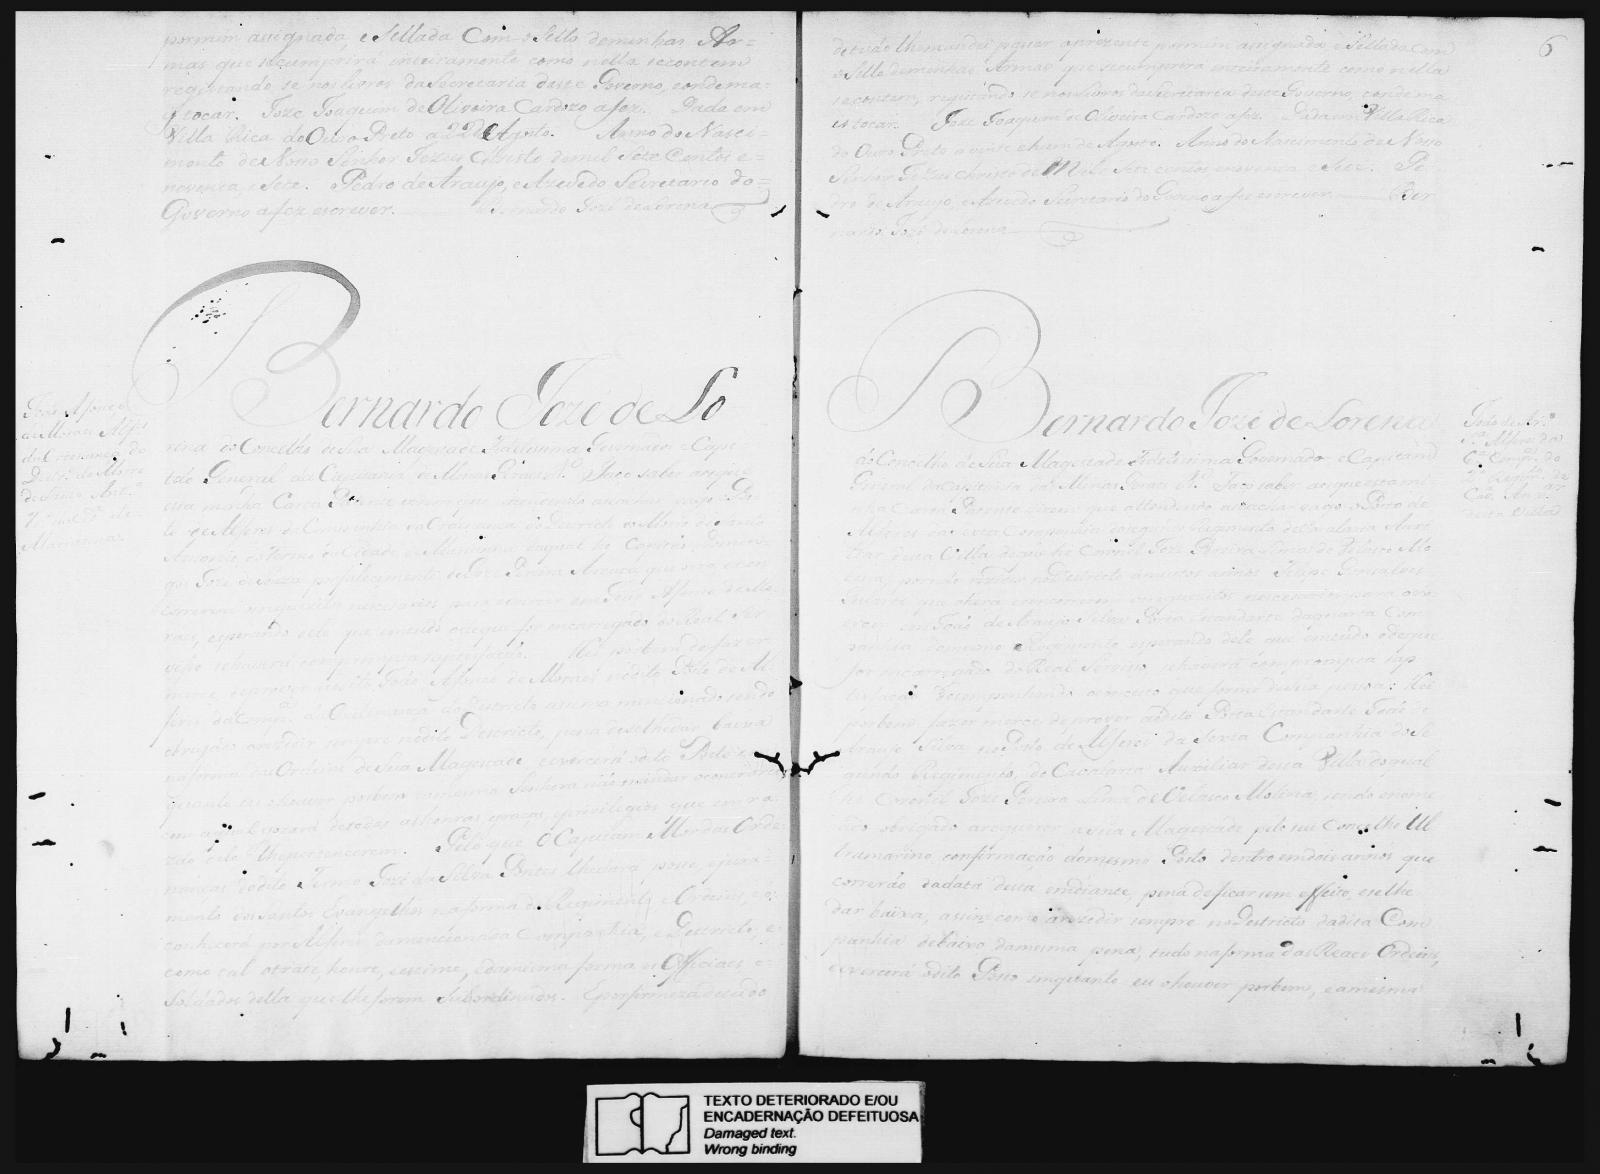 por mim assignada, e Sellada Com o Sello de minhas Ar=
mas que se cumprirá inteiramente como nella se contem
registando se nos livros da Secretaria deste Governo, e onde ma=
is tocar. Joze Joaquim de Oliveira Cardozo a fez. Dada em
Villa Rica do Ouro Preto a 22 de Agosto. Anno do Nasci=
mento de Nosso Senhor Jezus Christo de mil Sete Centos e=
noventa, e Sete. Pedro de Araujo, e Azevedo Secretario do=
Governo a fez escrever. Bernardo Jozé de Lorena
Bernardo Jozé de Lo
rena do Concelho de Sua Magestade Fidelissima Governador e Capi
tão General da Capitania de Minas Geraes &ª. Faço saber aos que
esta minha Carta Patente virem que attendendo a se achar vago o Pos
to de Alferes da Companhia da Ordenança do Destricto do Morro de Santo
Antonio, do Termo da Cidade de Marianna, da qual he Capitão
Jozé de Souza por falecimento de Joze Pereira
concorrem os requizitos necessarios para exercer em João Afonso de Mo
raes, esperando delle que em tudo o de que for encarregado do Real Ser
viço se haverá com prompta satisfação. Hei por bem de fazer
merce de prover ao dito João Afonso de Moraes no dito Posto de Al
feres da Compª. da Ordenança do Destricto asima mencionado sendo
obrigado a rezidir sempre no dito Destricto, pena de se lhe dar baixa
na forma das Ordens de Sua Magestade e exercerá o dito Posto em
quanto eu o houver por bem e a mesma Senhora não mandar o contrario
com o qual gozará de todas as honras, graças, e privilegios que em ra
zão delle lhe pertencerem. Pelo que o Capitam Mor das Orde
nanças do dito Termo Jozé da Silva Pontes lhe dará posse, e jura=
mento dos Santos Evangelhos na forma do Regimento, e Ordens, e o
conhecerá por Alferes da mencionada Companhia, e Destricto, e
como tal o trate, honre, e estime, e da mesma forma os Officiaes e
Soldados della que lhe forem subordinados. E por firmeza de tudo
João Afonso
de Moraes Alfes.
da Ordenança do
Destrº. do Morro
de Santo Antº.
Tº. da Cidª. de
Marianna.
6
de tudo lhe mandei passar a prezente por mim assignada e Sellada com
o Sello de minhas Armas que se cumprirá inteiramente como nella
se contem, registando se nos livros da Secretaria deste Governo, e onde ma
is tocar. Joze Joaquim de Oliveira Cardozo a fez. Dada em Villa Rica
do Ouro Preto a vinte e hum de Agosto. Anno do Nascimento de Nosso
Senhor Jezus Christo de Mil e Sete centos e noventa e Sete. Pe
dro de Araujo, e Azevedo Secretario do Governo a fez escrever. Ber
nardo Jozé de Lorena
Bernardo Jozé de Lorena
do Concelho de Sua Magestade Fidelissima Governador e Capitam
General da Capitania das Minas Geraes &ª. Faço saber aos que esta mi
nha Carta Patente virem que attendendo a se achar vago o Posto de
Alferes da Sexta Companhia do segundo Regimento de Cavalaria Auxi
liar desta Villa de que he Coronel Joze Pereira Lima de Velasco Mo
lina, por não rezidir no Destricto a muitos annos Felipe Gonsalves
que o hera e concorrem os requizitos necessarios para o e
xercer em João de Araujo Silva Porta Estandarte da quarta Com
panhia do mesmo Regimento, esperando dele que em tudo o de que
for encarregado do Real Serviço se haverá com prompta sa
tisfação dezempenhando o conceito que formo da sua pessoa: Hei
por bem fazer merce de prover ao dito Porta Estandarte João de
Araujo Silva no Posto de Alferes da Sexta Companhia do Se
gundo Regimento de Cavalaria Auxiliar desta Villa do qual
he Coronel Joze Pereira Lima de Velasco Molina, sendo o nome
ado obrigado a requerer a Sua Magestade pelo seu Concelho Ul
tramarino confirmação do mesmo Posto dentro em dois annos que
correrão da data desta em diante, pena de ficar sem effeito, e se lhe
dar baixa, assim como a rezidir sempre no Destricto da dita Com
panhia debaixo da mesma pena, tudo na forma das Reaes Ordens,
e exercerá o dito Posto em quanto eu o houver por bem, e a mesma
João de Arº.
Sª. Alfes. da
6ª. Compª. do
2º. Regtº. de
Cavª. Auxªr.
desta Villa
TEXTO DETERIORADO E/OU
ENCADERNAÇÃO DEFEITUOSA
Damaged text.
Wrong binding